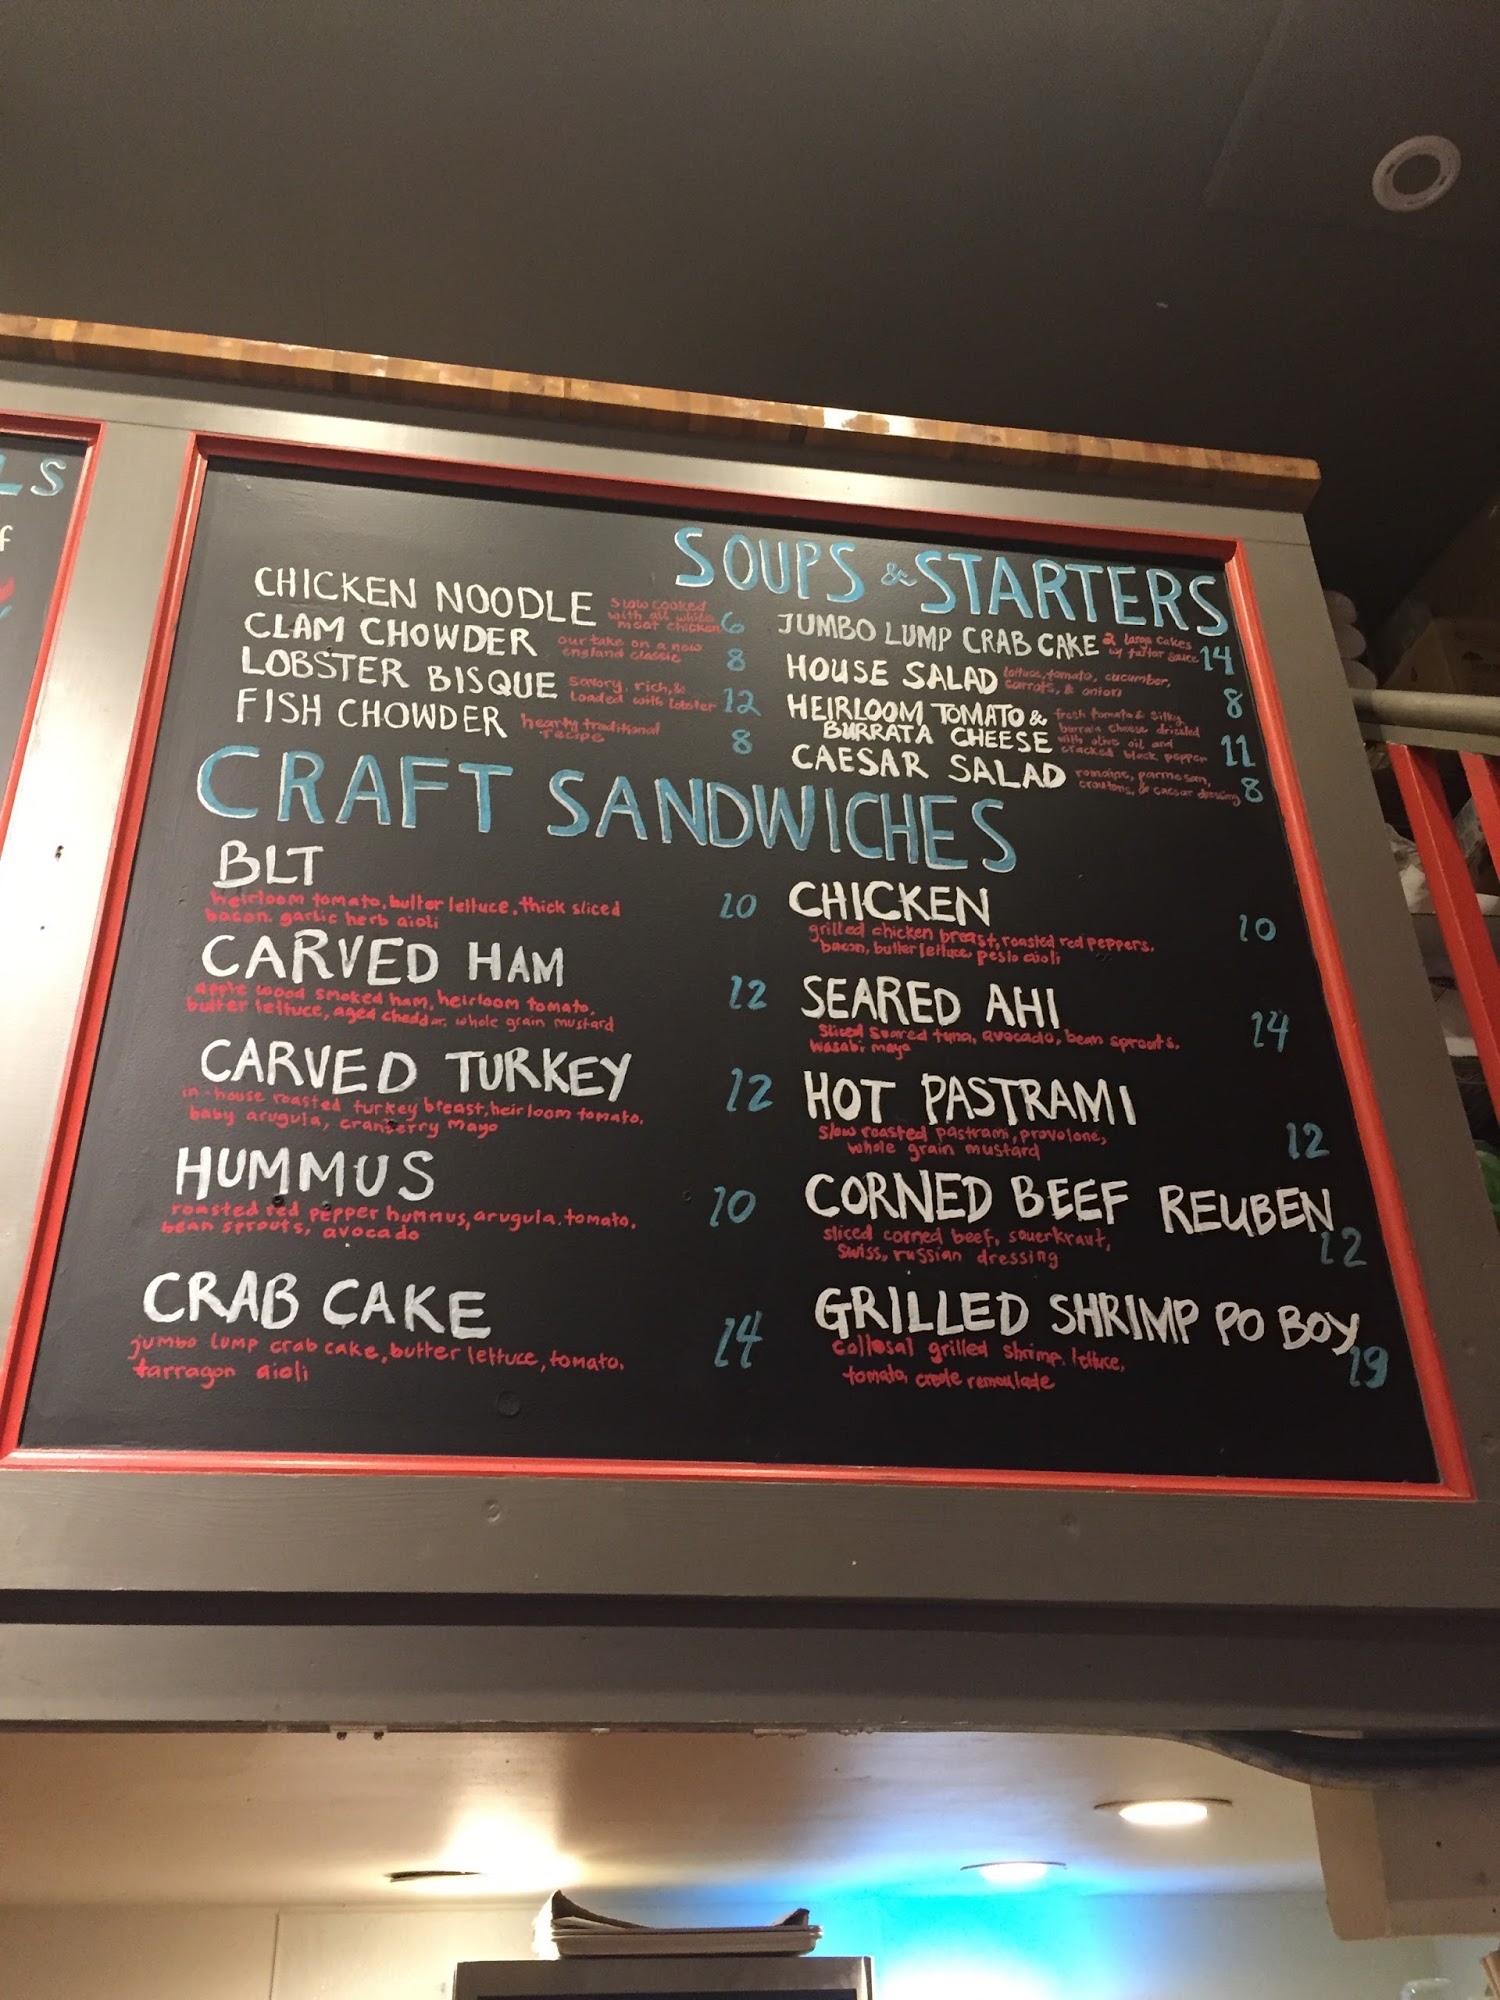 LS
f
SOUPS & STARTERS
CHICKEN NOODLE
slow cooked
with all white
meat chicken
6
CLAM CHOWDER
our take on a new
england classic
8
LOBSTER BISQUE
savory, rich, &
loaded with lobster
12
FISH CHOWDER
hearty traditional
recipe
8
JUMBO LUMP CRAB CAKE
2 large cakes
w/ tartar sauce
14
HOUSE SALAD
lettuce, tomato, cucumber,
carrots, & onion
8
HEIRLOOM TOMATO &
BURRATA CHEESE
fresh tomato & silky
burrata cheese drizzled
with olive oil and
cracked black pepper
11
CAESAR SALAD
romaine, parmesan,
croutons, & caesar dressing
8
CRAFT SANDWICHES
BLT
heirloom tomato, butter lettuce, thick sliced
bacon, garlic herb aioli
10
CARVED HAM
apple wood smoked ham, heirloom tomato,
butter lettuce, aged cheddar, whole grain mustard
12
CARVED TURKEY
in-house roasted turkey breast, heirloom tomato,
baby arugula, cranberry mayo
12
HUMMUS
roasted red pepper hummus, arugula, tomato,
bean sprouts, avocado
10
CRAB CAKE
jumbo lump crab cake, butter lettuce, tomato,
tarragon aioli
14
CHICKEN
grilled chicken breast, roasted red peppers,
bacon, butter lettuce, pesto aioli
10
SEARED AHI
sliced seared tuna, avocado, bean sprouts,
wasabi mayo
14
HOT PASTRAMI
slow roasted pastrami, provolone,
whole grain mustard
12
CORNED BEEF REUBEN
sliced corned beef, sauerkraut,
swiss, russian dressing
12
GRILLED SHRIMP PO BOY
collosal grilled shrimp, lettuce,
tomato, creole remoulade
19